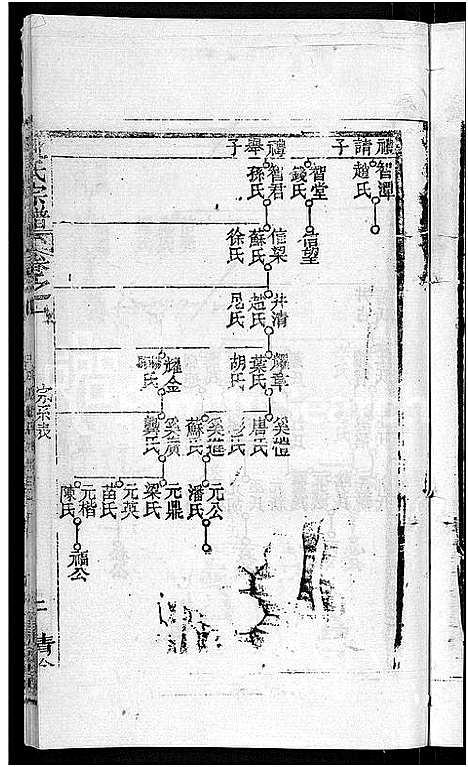 禮請子
禮舉子
智潭
趙氏
智堂
錢氏
智君
孫氏
信望
信梁
蘇氏
徐氏
井清
趙氏
尼氏
耀章
葉氏
胡氏
耀金
氏
奚禮
唐氏
氏
奚進
蘇氏
奚廣
龔氏
元公
潘氏
元鼎
梁氏
元英
苗氏
元楷
陳氏
福公
氏宗譜
卷之
宗系表